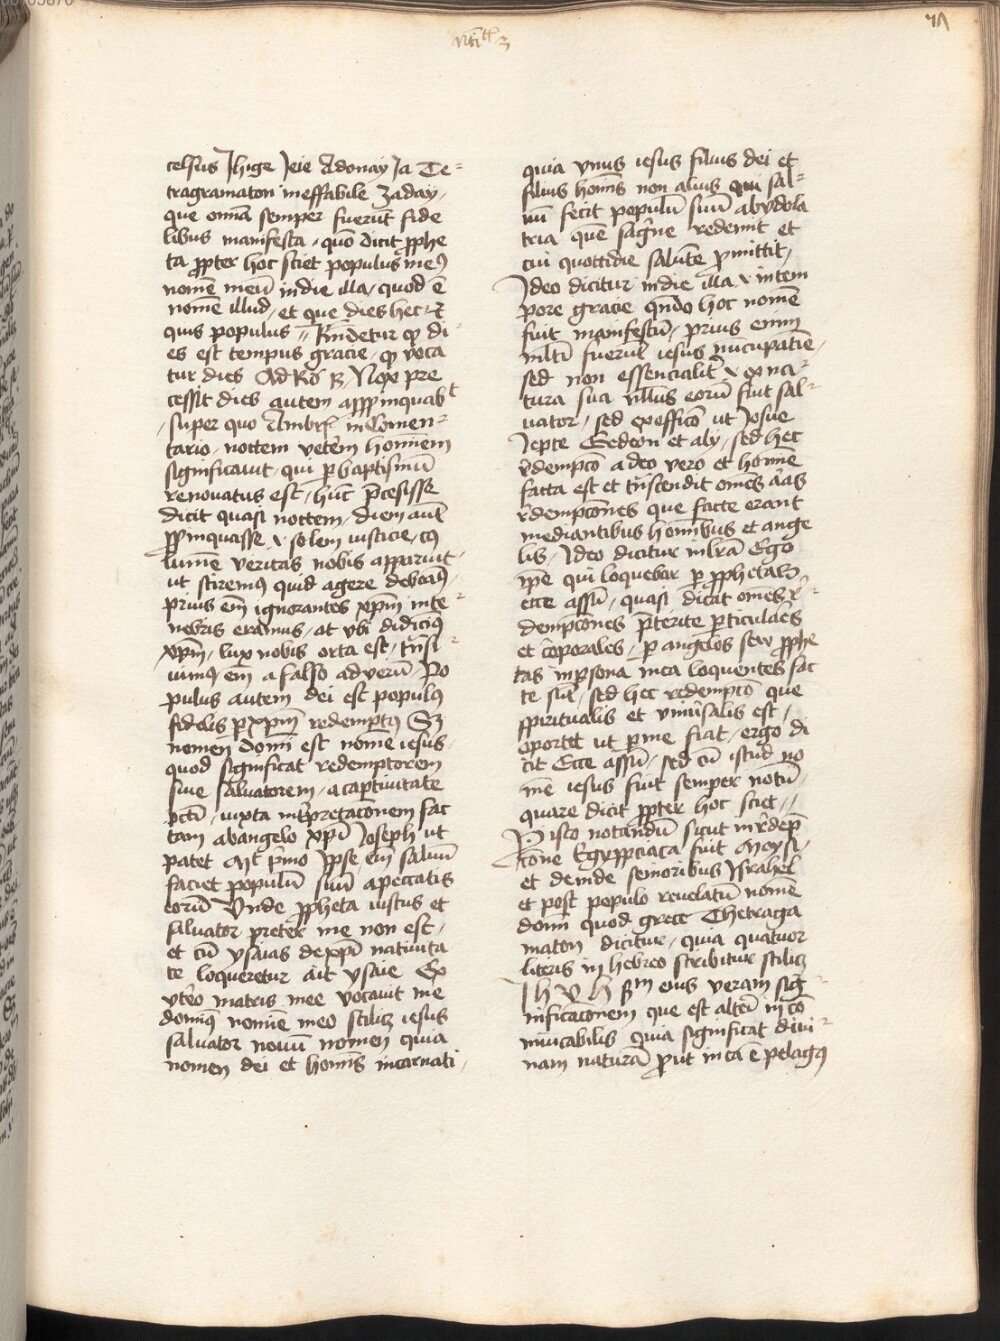 celsus Jhige Jeie Adonay Ja Te-
tragramaton ineffabile Zaday,
que omīa semper fuerūt fide
libus manifesta, quō dicit ꝓphe
ta ꝓpter hoc sciet populus meꝰ
nomē meū in die illa, quod ē
nomē illud, et que dies hec et
quis populus, Rn̄detur ꝙ di-
es est tempus gracie, ꝙ voca
tur dies Ad Ro 13 Nox pre
cessit dies autem appropinquabt
super quo Ambr̄ in Comen-
tario, noctem vetēm hominem
significauit, qui ꝑ baptismū
renouatus est, huc p̄cesisse
dicit quasi noctem, diem aut̄
ꝓpinquasse, solem iusticie, cꝰ
lumē veritas nobis apparuit,
ut sciremꝰ quid agere debeaꝰ,
prius em̄ ignorantes xpm̄ inte-
nebris eramus, at vbi didicimꝰ
xpm̄, lux nobis orta est, trāsi-
uimꝰ em̄ a falso ad verū, Po
pulus autem dei est populꝰ
fidelis ꝑ xpm̄ redemptꝰ Sꝫ
nomen domī est nomē iesus,
quod significat redemptorem
siue saluatorem, a captiuitate
pcti, iuxta int̄pretacōnem fac
tam ab angelo xpi Joseph ut
patet Mt p̄mo Ipse em̄ saluū
faciet populū suū a peccatis
eorū Unde ꝓpheta iustus et
saluator preter me non est,
et cū ysaias de xpi natiuita
te loqueretur ait ysaie Ex
vtēo matris mee vocauit me
domīꝰ nomīe meo scilicꝫ iesus
saluator nouū nomen quia
nomen dei et homīs incarnati,
quia vnus iesus filius dei et
filius homīs non alius qui sal-
uū fecit populū suū ab ydola
tria quē sāgīne redemit et
cui quottidie salutē ꝓmittit,
Ideo dicitur in die illa, intem
pore gracie qn̄do hoc nomē
fuit manifestū, prius enim
multi fuerūt iesus nūcupatiue,
sed non essencialit̄ ex na-
tura sua nullus eorū fuit sal-
uator, sed ex officō ut Josue
Jepte Gedeon et aly, sed hec
r̄dempcō a deo vero et homīe
facta est et trāscendit omēs āas
r̄dempcōnes que facte erant
mediantibus homībus et ange
lis, Ideo dicitur in lrā Ego
ip̄e qui loquebar ꝑ ꝓphetas
ecce assū, quasi dicat omēs r̄-
dempcōnes p̄terite ꝑticulaēs
et corporales, ꝑ angelos seu ꝓphe
tas in ꝑsona mea loquentes fac
te sūt, sed hec redempcō que
spiritualis et vniūsalis est,
oportet ut ꝑ me fiat, ergo di
cit Ecce assū, sed cū istud no
mē iesus fuit semper notū,
quare dicit ꝓpter hoc sciet,
Pro isto notandū sicut in r̄dep̄
cione Egyppciaca fuit Moysi,
et deinde senioribus Israhel
et post populo reuelatū nomē
domī quod grece Thetraga
maton dicitur, quia quatuor
literis in hebreo scribitur scilicꝫ
J h v h sm̄ eius veram sig-
nificacōnem que est altēi incō
muicabilis quia significat diui-
nam naturā ꝓut in ea ē pelagꝰ